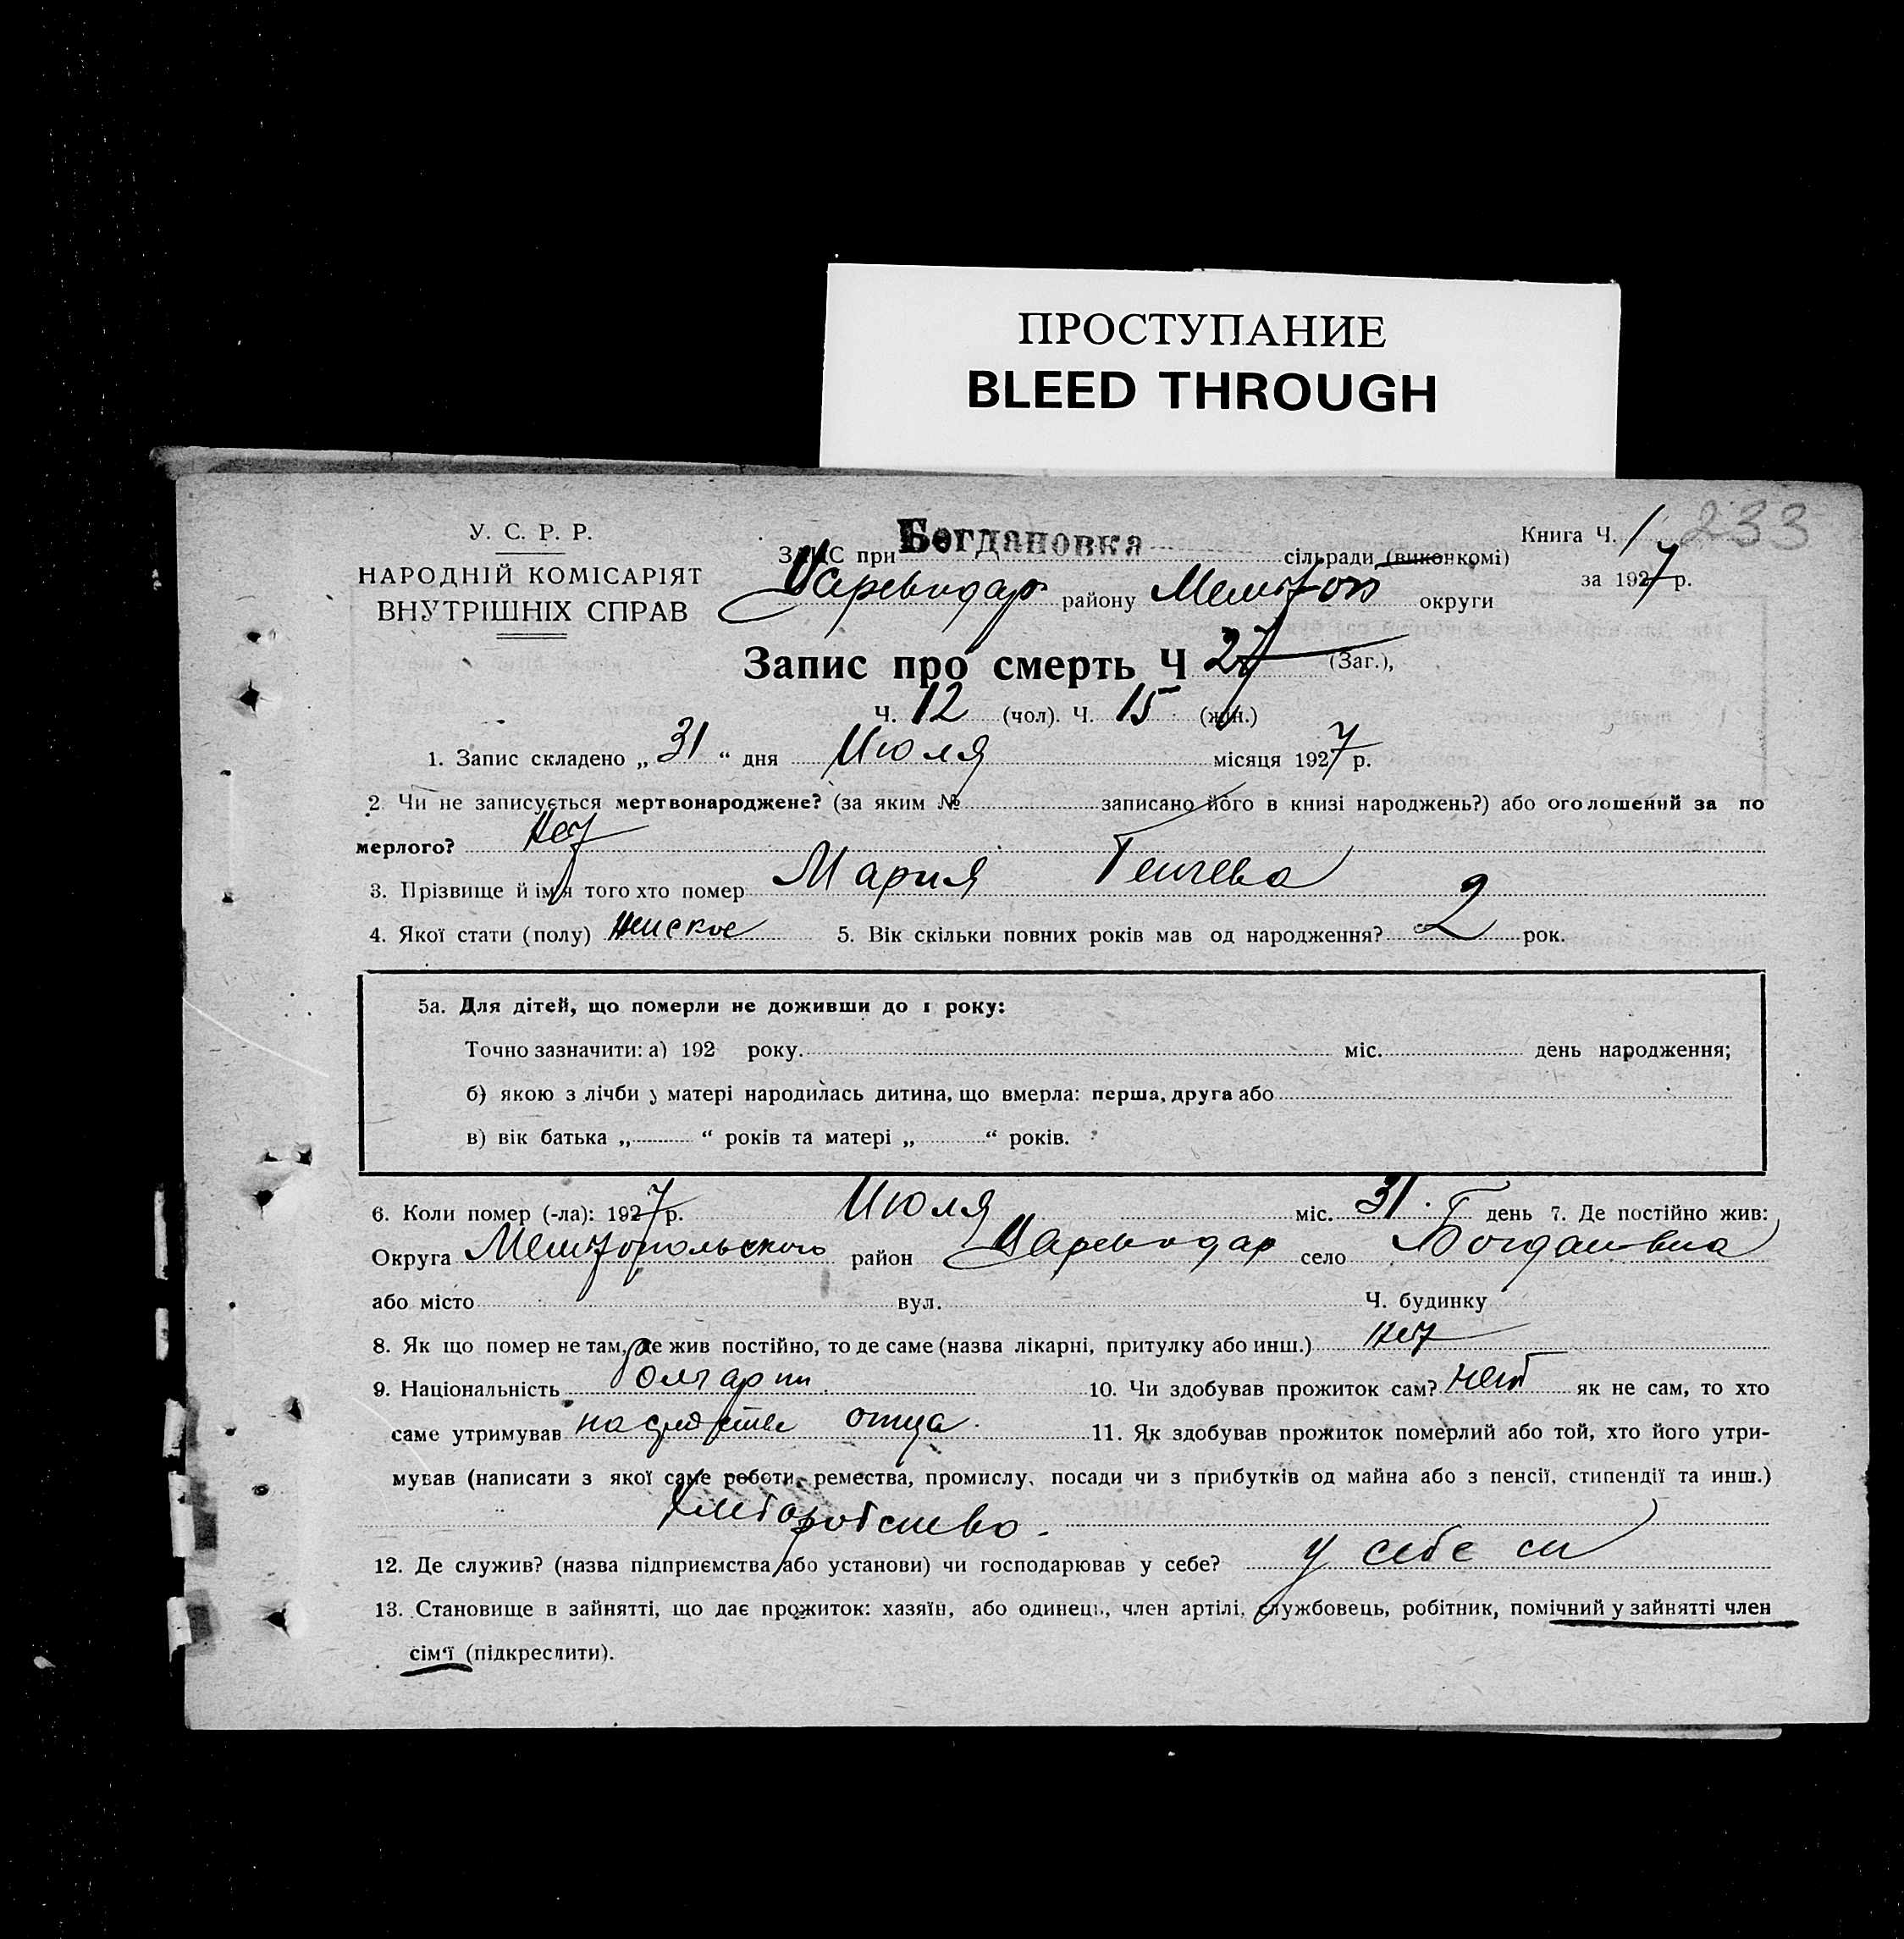 ПРОСТУПАНИЕ
BLEED THROUGH
У. С. Р. Р.
НАРОДНІЙ КОМІСАРІЯТ
ВНУТРІШНІХ СПРАВ
ЗАГС при Богдановка сільради (виконкомі)
Цареводар району Мелитоп округи
Книга Ч. 1 233
за 1927 р.
Запис про смерть Ч 27 (Заг.),
Ч. 12 (чол). Ч. 15 (жін.)
1. Запис складено „ 31 “ дня Июля місяця 1927 р.
2. Чи не записується мертвонароджене? (за яким № записано його в книзі народжень?) або оголошений за по
мерлого? Нет
3. Прізвище й ім'я того хто помер Мария Генчева
4. Якої стати (полу) Женское 5. Вік скільки повних років мав од народження? 2 рок.
5а. Для дітей, що померли не доживши до 1 року:
Точно зазначити: а) 192 року. міс. день народження;
б) якою з лічби у матері народилась дитина, що вмерла: перша, друга або
в) вік батька „ “ років та матері „ “ років.
6. Коли помер (-ла): 1927 р. Июля міс. 31 день 7. Де постійно жив:
Округа Мелитопольского район Цареводар село Богдановка
або місто вул. Ч. будинку
8. Як що помер не там, де жив постійно, то де саме (назва лікарні, притулку або инш.) Нет
9. Національність Болгарин 10. Чи здобував прожиток сам? Нет як не сам, то хто
саме утримував на средства отца 11. Як здобував прожиток померлий або той, хто його утри-
мував (написати з якої саме роботи, ремества, промислу, посади чи з прибутків од майна або з пенсії, стипендії та инш.)
Хлеборобство.
12. Де служив? (назва підприємства або установи) чи господарював у себе? у себе
13. Становище в зайнятті, що дає прожиток: хазяїн, або одинець, член артілі, службовець, робітник, помічний у зайнятті член
сім'ї (підкреслити).